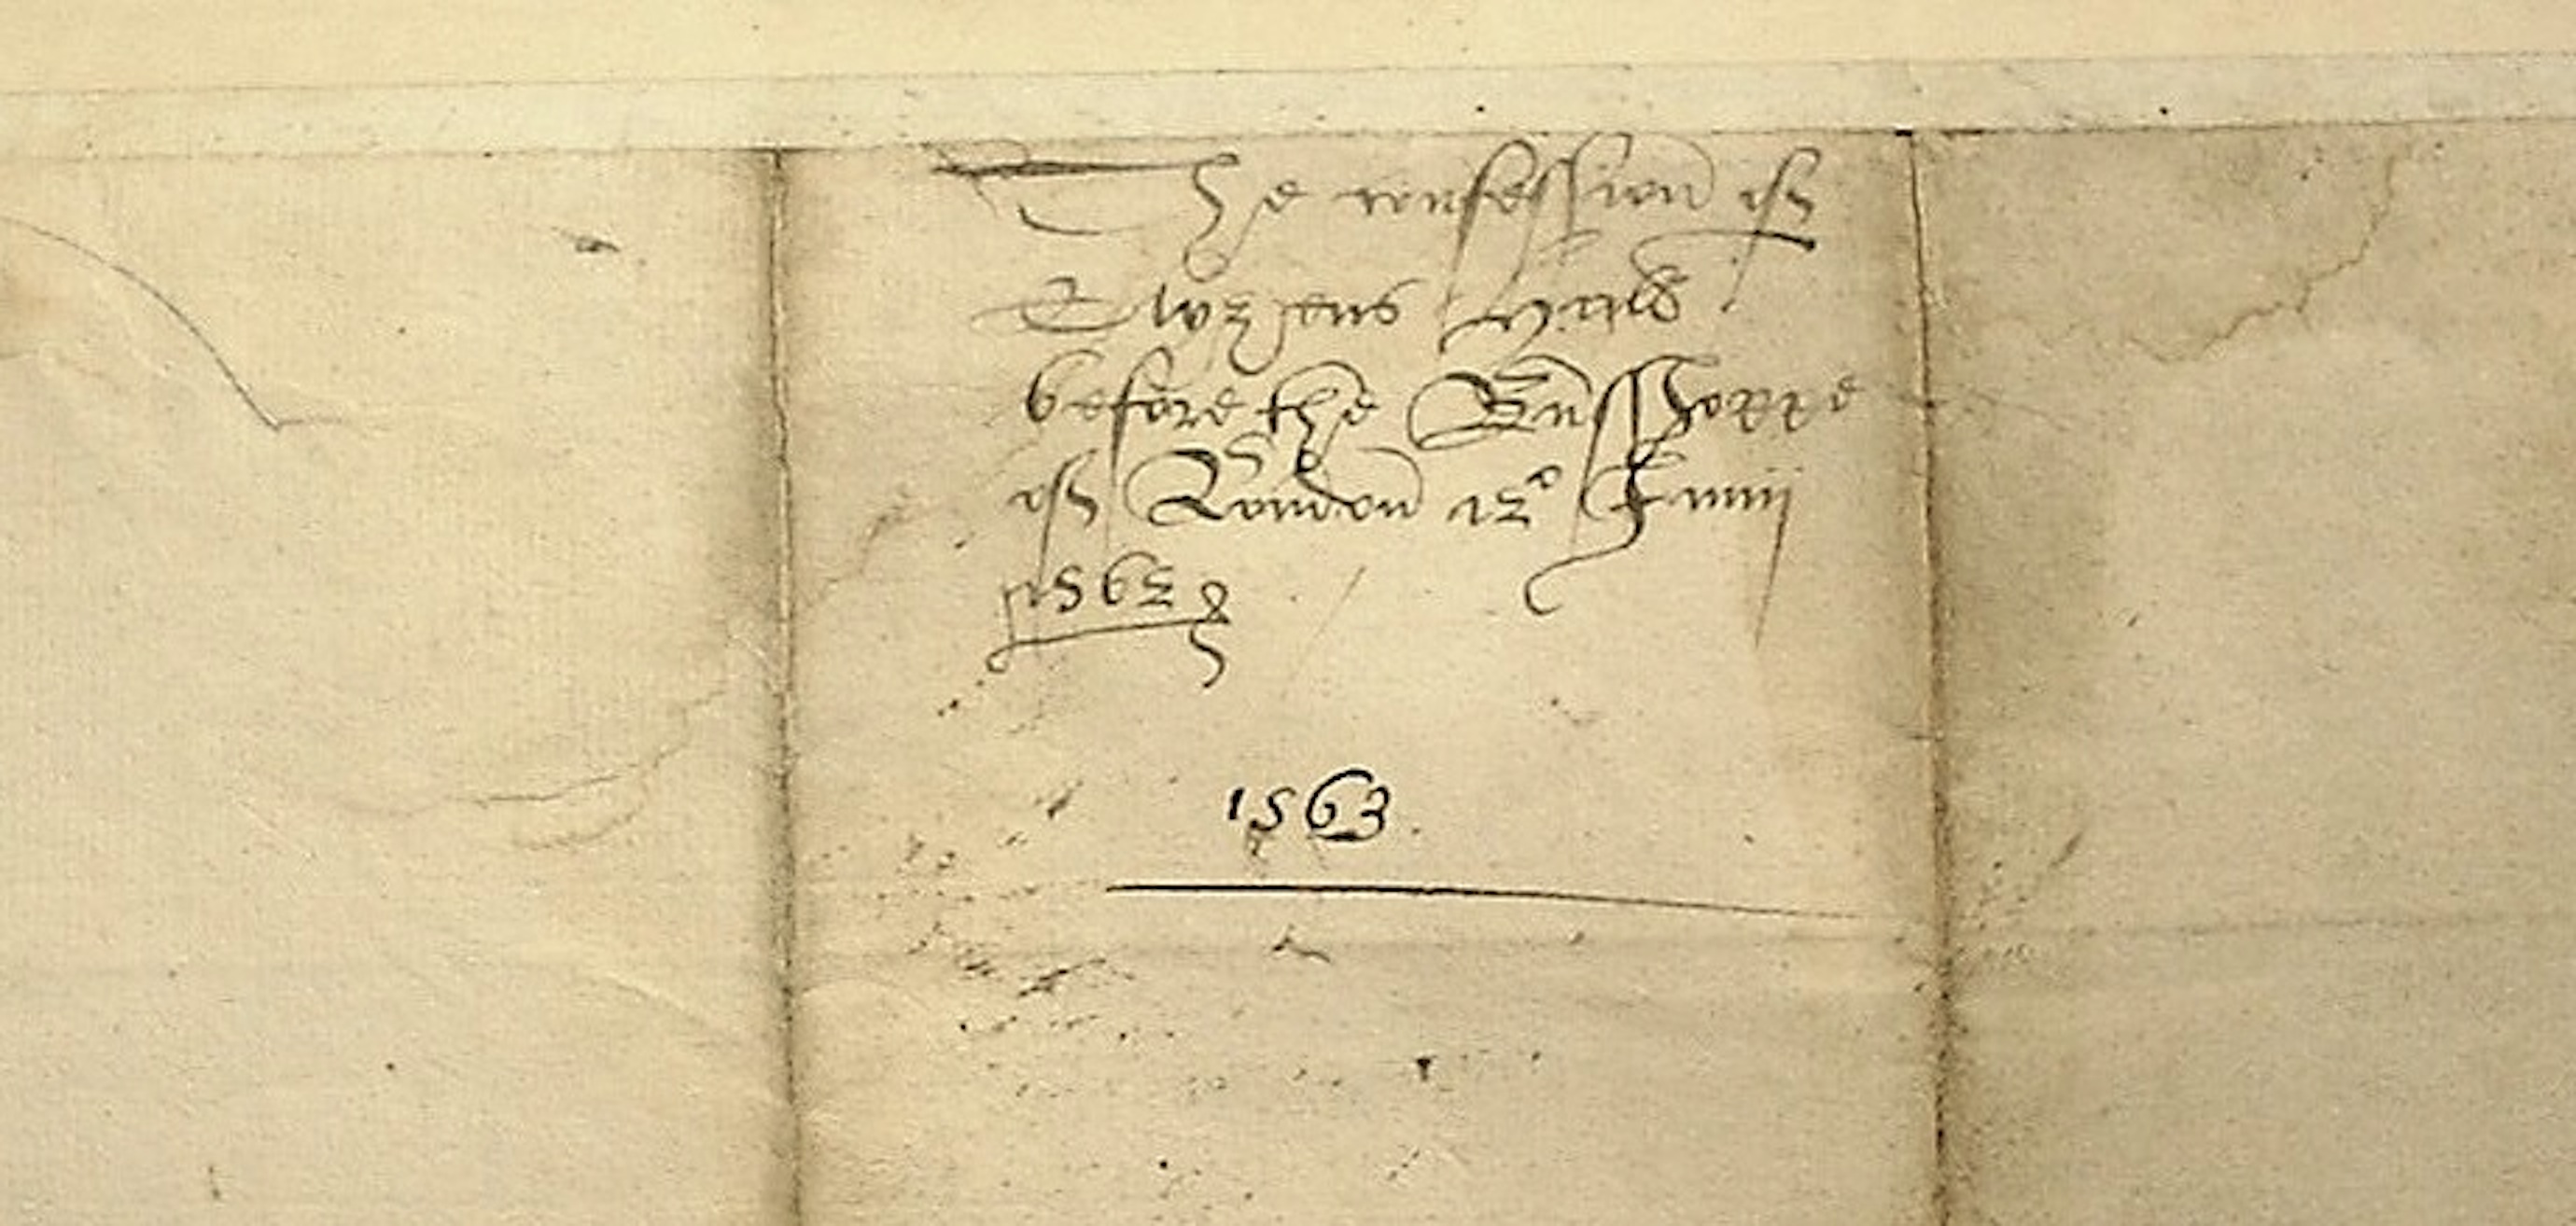 The confession of
Elyzeus Hall
before the Busshoppe
of London 12º Junii
1562
1563